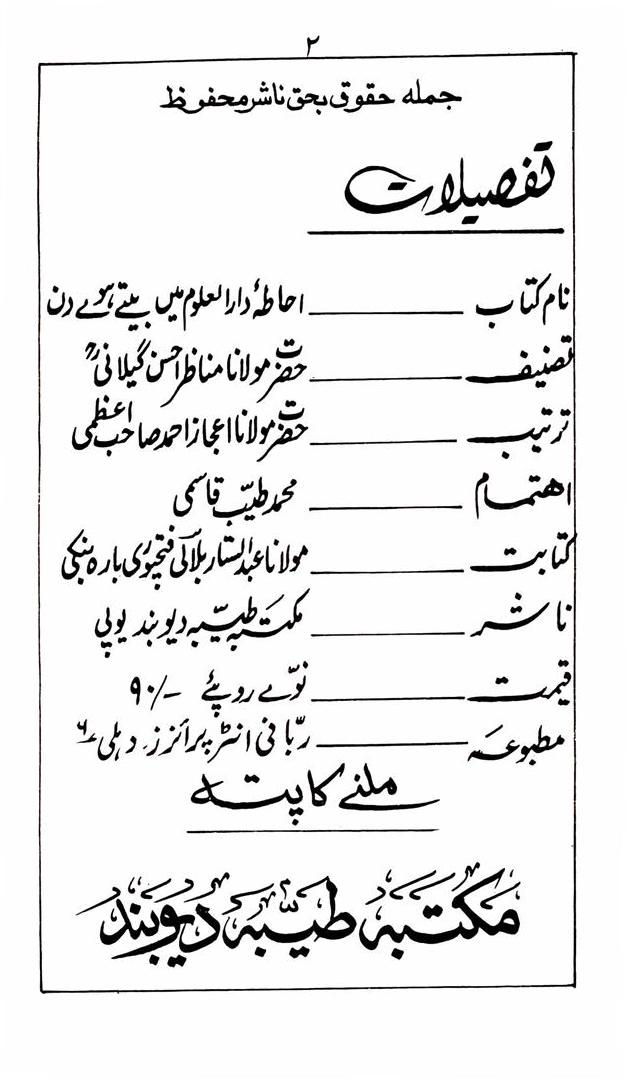 ۲
جملہ حقوق بحق ناشر محفوظ
تفصیلات
نام کتاب ــــــ احاطۂ دارالعلوم میں بیتے ہوے دن
تصنیف ــــــ حضرت مولانا مناظر احسن گیلانیؒ
ترتیب ــــــ حضرت مولانا اعجاز احمد صاحب اعظمی
اھتمام ــــــ محمد طیّب قاسمی
کتابت ــــــ مولانا عبدالستار بلالی فتحپوری بارہ بنکی
ناشر ــــــ مکتبہ طیّبہ دیوبند یوپی
قیمت ــــــ نوّے روپئے ۹۰/-
مطبوعہ ــــــ ربّانی انٹرپرائزز، دہلی ۶
ملنے کا پتہ
مکتبہ طیّبہ دیوبند